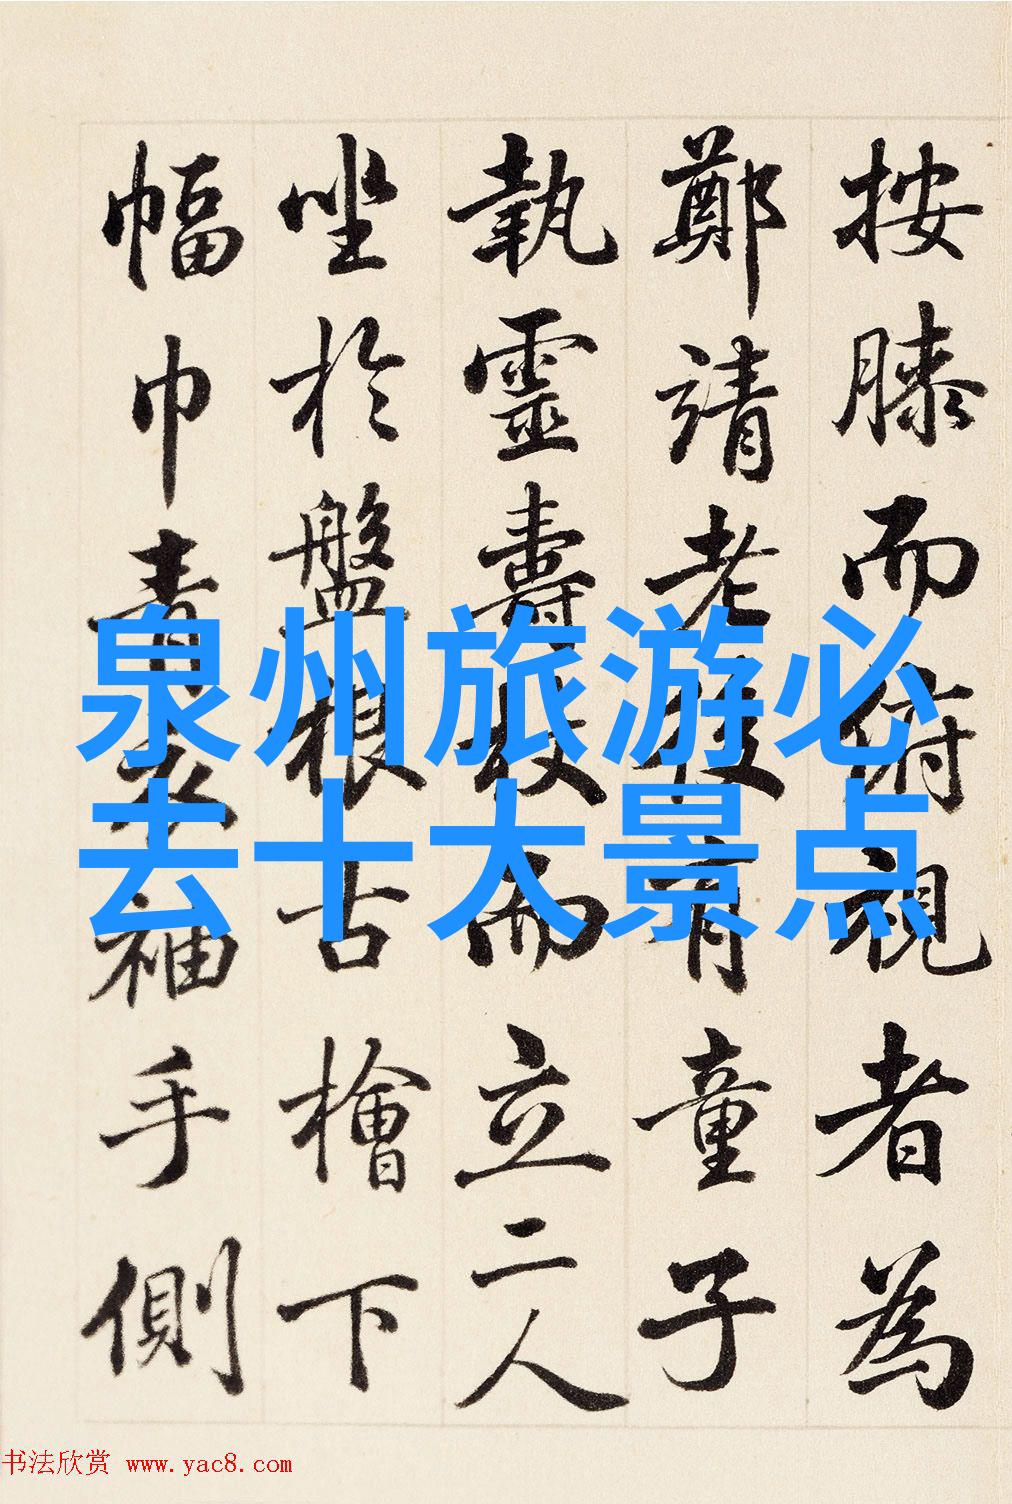 按膝而俯視者為
鄭靖老後有童子
執靈壽杖而立二人
坐於盤根古檜下
幅巾青衣袖手側
泉州旅游必
去十大景点
书法欣赏 www.yac8.com